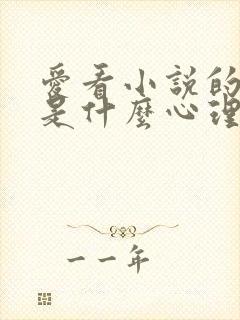 愛看小說的
是什麼心理
一一年